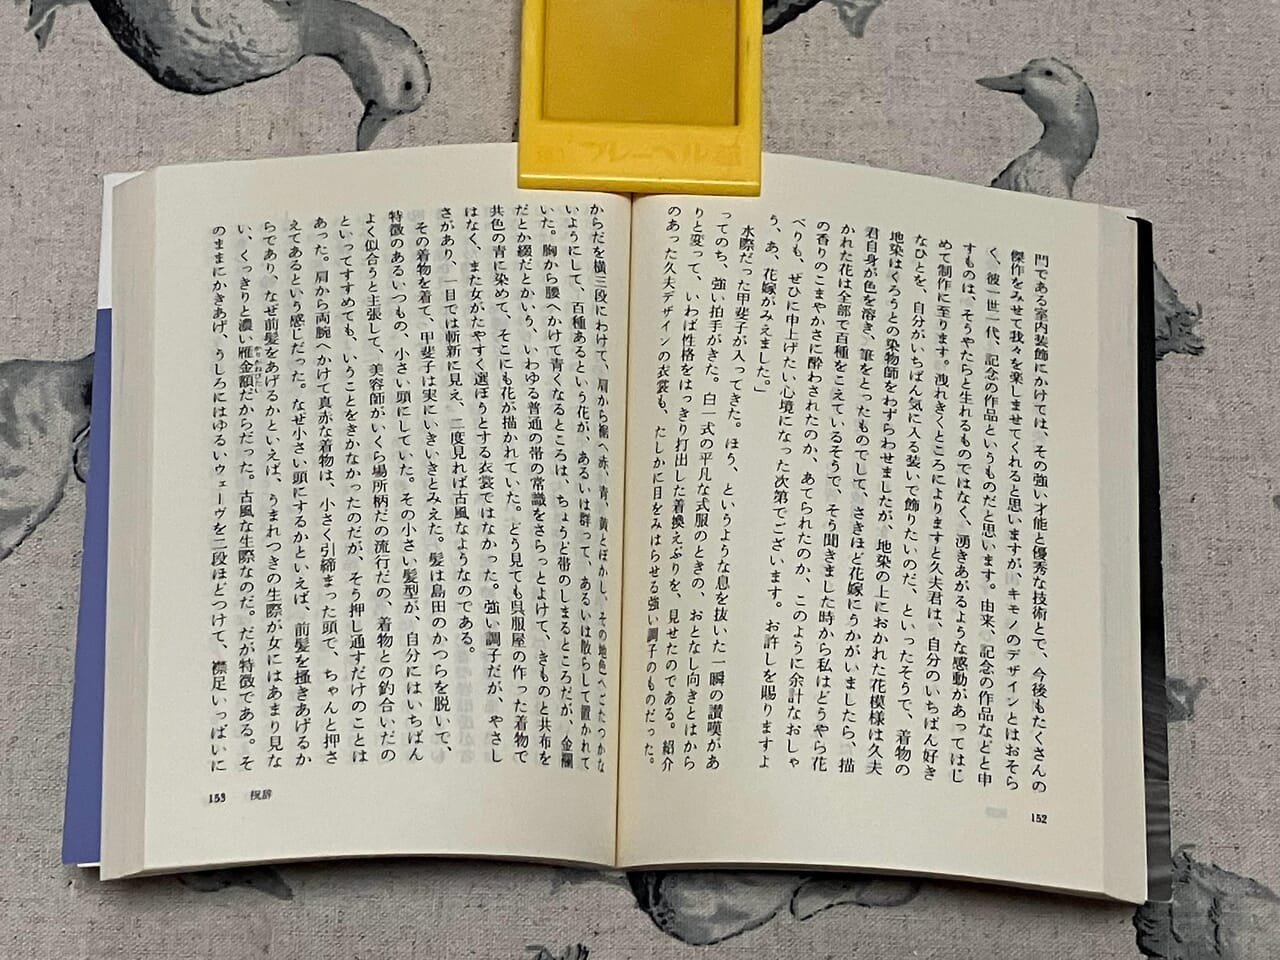 門である室内装飾にかけては、その強い才能と優秀な技術とで、今後もたくさんの
傑作をみせて我々を楽しませてくれると思いますが、キモノのデザインとはおそら
く、彼一世一代、記念の作品というものだと思います。由来、記念の作品などと申
すものは、そうやたらと生れるものではなく、湧きあがるような感動があってはじ
めて制作に至ります。洩れきくところによりますと久夫君は、自分のいちばん好き
なひとを、自分がいちばん気に入る装いで飾りたいのだ、といったそうで、着物の
地染はくろうとの染物師をわずらわせましたが、地染の上におかれた花模様は久夫
君自身が色を溶き、筆をとったものでして、さきほど花嫁にうかがいましたら、描
かれた花は全部で百種をこえているそうで、そう聞きました時から私はどうやら花
の香りのこまやかさに酔わされたのか、あてられたのか、このように余計なおしゃ
べりも、ぜひに申上げたい心境になった次第でございます。お許しを賜りますよ
う、あ、花嫁がみえました。」
水際だった甲斐子が入ってきた。ほう、というような息を抜いた一瞬の讃嘆があ
ってのち、強い拍手がきた。白一式の平凡な式服のときの、おとなし向きとはから
りと変って、いわば性格をはっきり打出した着換えぶりを、見せたのである。紹介
のあった久夫デザインの衣裳も、たしかに目をみはらせる強い調子のものだった。
152
からだを横三段にわけて、肩から裾へ赤、青、黄とぼかし、その地色へごたつかな
いようにして、百種あるという花が、あるいは群って、あるいは散らして置かれて
いた。胸から腰へかけて青くなるところは、ちょうど帯のしまるところだが、金襴
だとか綴だとかいう、いわゆる普通の帯の常識をさらっとよけて、きものと共布を
共色の青に染めて、そこにも花が描かれていた。どう見ても呉服屋の作った着物で
はなく、また女がたやすく選ぼうとする衣裳ではなかった。強い調子だが、やさし
さがあり、一目では斬新に見え、二度見れば古風なようなのである。
その着物を着て、甲斐子は実にいきいきとみえた。髪は島田のかつらを脱いで、
特徴のあるいつもの、小さい頭にしていた。その小さい髪型が、自分にはいちばん
よく似合うと主張して、美容師がいくら場所柄だの流行だの、着物との釣合いだの
といってすすめても、いうことをきかなかったのだが、そう押し通すだけのことは
あった。肩から両腕へかけて真赤な着物は、小さく引締まった頭で、ちゃんと押さ
えてあるという感じだった。なぜ小さい頭にするかといえば、前髪を掻きあげるか
らであり、なぜ前髪をあげるかといえば、うまれつきの生際が女にはあまり見な
い、くっきりと濃い雁金額だからだった。古風な生際なのだ。だが特徴である。そ
のままにかきあげ、うしろにはゆるいウェーヴを二段ほどつけて、襟足いっぱいに
153 祝辞